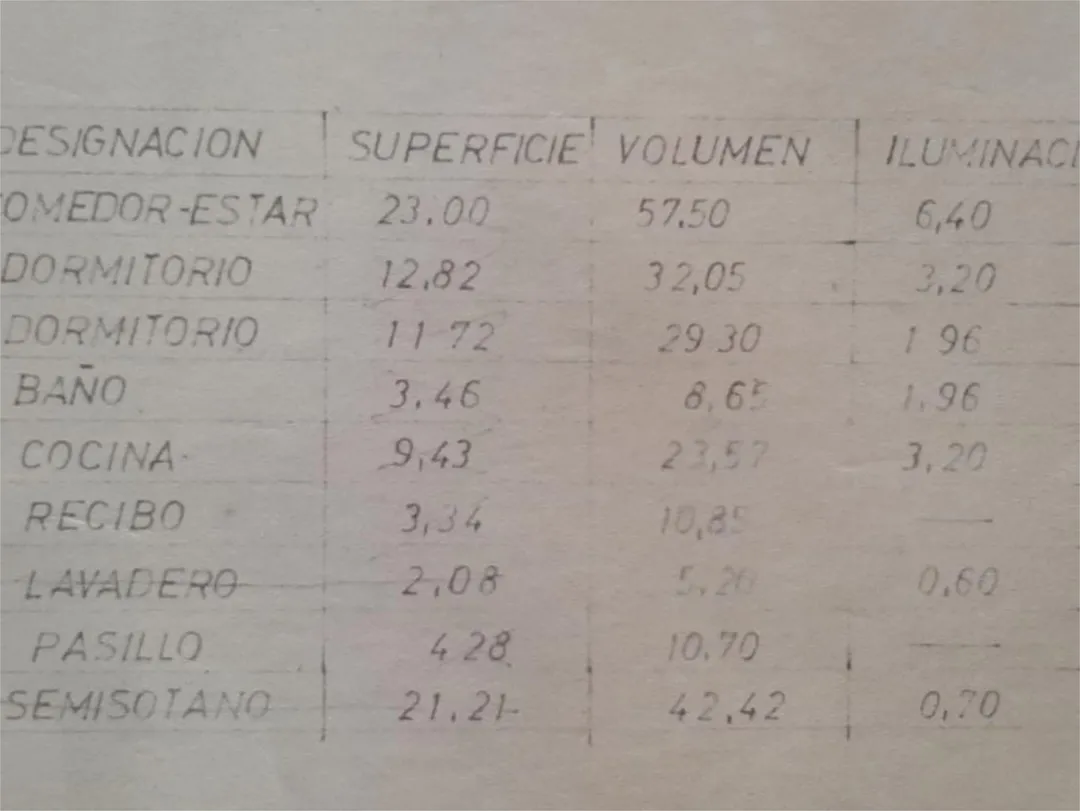 DESIGNACION SUPERFICIE VOLUMEN ILUMINACI
COMEDOR-ESTAR 23.00 57.50 6,40
DORMITORIO 12,82 32,05 3,20
DORMITORIO 11 72 29 30 1 96
BAÑO 3.46 8,65 1.96
COCINA 9,43 23,57 3,20
RECIBO 3,34 10,85 —
LAVADERO 2,08 5.20 0,60
PASILLO 4 28 10.70 —
SEMISOTANO 21.21 42,42 0,70